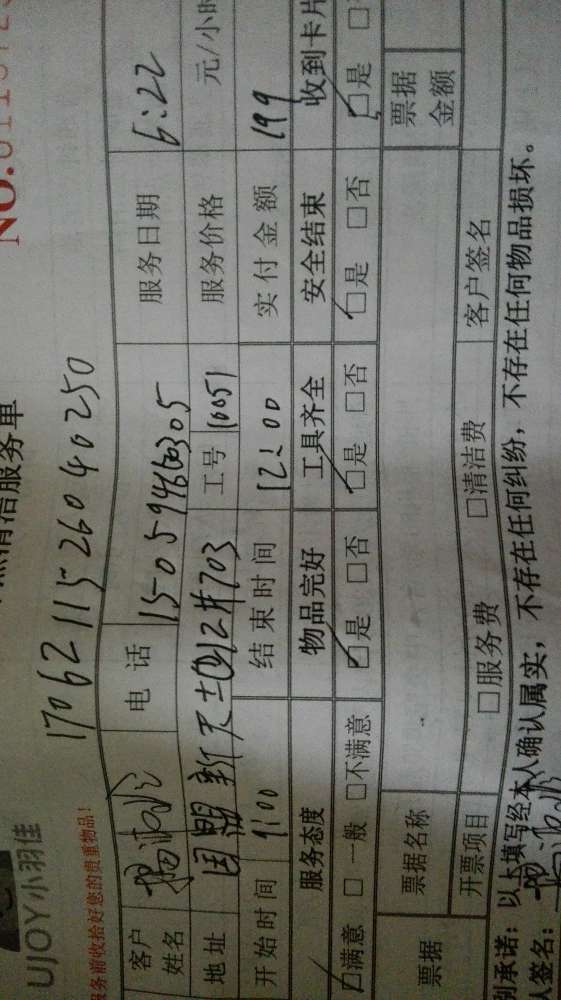 NO.
清洁服务单
UJOY小羽佳
1706211526040250
服务前收拾好您的贵重物品!
客户姓名 电话 15059466305 服务日期 6:22
地址 国盟新天地12#703 工号 1005 服务价格 元/小时
开始时间 9:00 结束时间 12:00 实付金额 199
服务态度 物品完好 工具齐全 安全结束 收到卡片
□满意 □一般 □不满意 □是 □否 □是 □否 □是 □否 □是
票据 票据名称 票据金额
开票项目 □服务费 □清洁费 客户签名
承诺:以上填写经本人确认属实,不存在任何纠纷,不存在任何物品损坏。
签名: